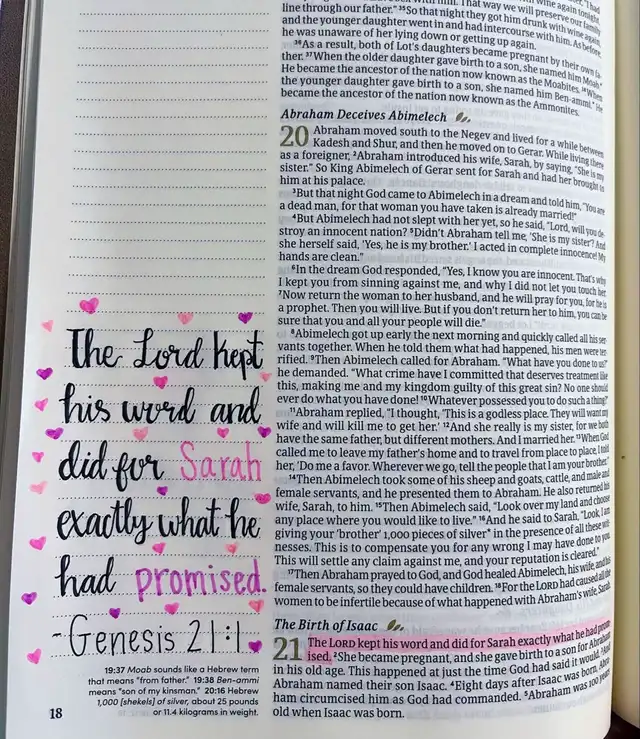 The Lord kept
his word and
did for Sarah
exactly what he
had promised.
-Genesis 21:1
19:37 Moab sounds like a Hebrew term
that means "from father." 19:38 Ben-ammi
means "son of my kinsman." 20:16 Hebrew
1,000 [shekels] of silver, about 25 pounds
or 11.4 kilograms in weight.
18
with him. That way we will preserve our family
line through our father." 35 So that night they got him drunk with wine again
and the younger daughter went in and had intercourse with him. As before,
he was unaware of her lying down or getting up again.
36 As a result, both of Lot's daughters became pregnant by their own fa-
ther. 37 When the older daughter gave birth to a son, she named him Moab.
He became the ancestor of the nation now known as the Moabites. 38 When
the younger daughter gave birth to a son, she named him Ben-ammi. He
became the ancestor of the nation now known as the Ammonites.
Abraham Deceives Abimelech
20 Abraham moved south to the Negev and lived for a while between
Kadesh and Shur, and then he moved on to Gerar. While living there
as a foreigner, 2 Abraham introduced his wife, Sarah, by saying, "She is my
sister." So King Abimelech of Gerar sent for Sarah and had her brought to
him at his palace.
3 But that night God came to Abimelech in a dream and told him, "You are
a dead man, for that woman you have taken is already married!"
4 But Abimelech had not slept with her yet, so he said, "Lord, will you de-
stroy an innocent nation? 5 Didn't Abraham tell me, 'She is my sister'? And
she herself said, 'Yes, he is my brother.' I acted in complete innocence! My
hands are clean."
6 In the dream God responded, "Yes, I know you are innocent. That's why
I kept you from sinning against me, and why I did not let you touch her.
7 Now return the woman to her husband, and he will pray for you, for he is
a prophet. Then you will live. But if you don't return her to him, you can be
sure that you and all your people will die."
8 Abimelech got up early the next morning and quickly called all his ser-
vants together. When he told them what had happened, his men were ter-
rified. 9 Then Abimelech called for Abraham. "What have you done to us?"
he demanded. "What crime have I committed that deserves treatment like
this, making me and my kingdom guilty of this great sin? No one should
ever do what you have done! 10 Whatever possessed you to do such a thing?"
11 Abraham replied, "I thought, 'This is a godless place. They will want my
wife and will kill me to get her.' 12 And she really is my sister, for we both
have the same father, but different mothers. And I married her. 13 When God
called me to leave my father's home and to travel from place to place, I told
her, 'Do me a favor. Wherever we go, tell the people that I am your brother.'"
14 Then Abimelech took some of his sheep and goats, cattle, and male and
female servants, and he presented them to Abraham. He also returned his
wife, Sarah, to him. 15 Then Abimelech said, "Look over my land and choose
any place where you would like to live." 16 And he said to Sarah, "Look, I am
giving your 'brother' 1,000 pieces of silver* in the presence of all these wit-
nesses. This is to compensate you for any wrong I may have done to you.
This will settle any claim against me, and your reputation is cleared."
17 Then Abraham prayed to God, and God healed Abimelech, his wife, and his
female servants, so they could have children. 18 For the LORD had caused all the
women to be infertile because of what happened with Abraham's wife, Sarah.
The Birth of Isaac
21 The LORD kept his word and did for Sarah exactly what he had prom-
ised. 2 She became pregnant, and she gave birth to a son for Abraham
in his old age. This happened at just the time God had said it would. 3 And
Abraham named their son Isaac. 4 Eight days after Isaac was born, Abra-
ham circumcised him as God had commanded. 5 Abraham was 100 years
old when Isaac was born.